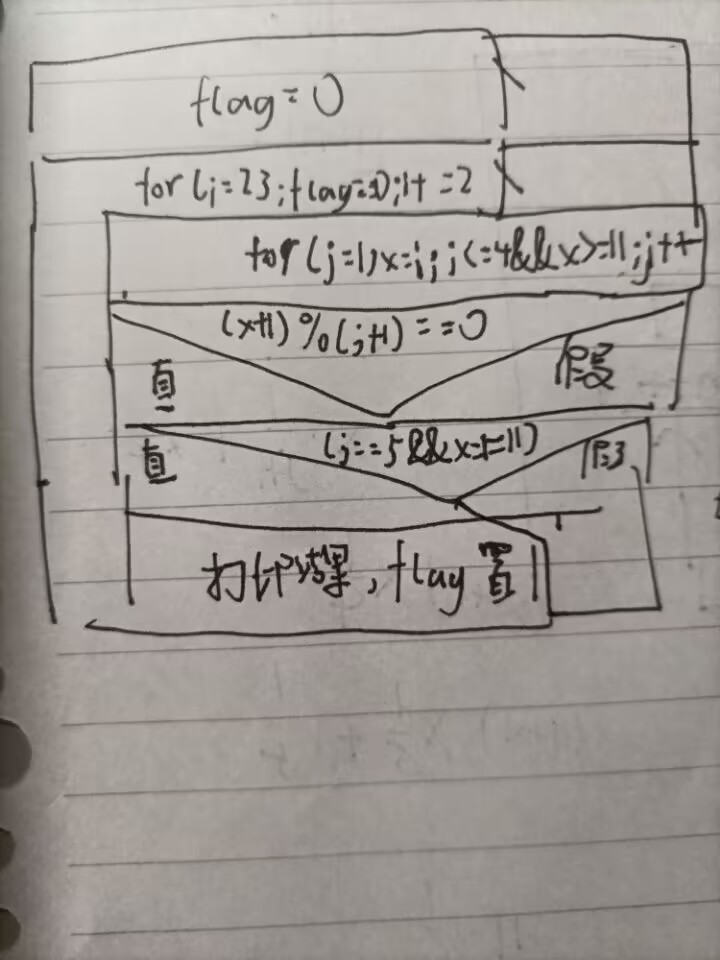 flag=0
for(i=23;flag==0;i+=2
for(j=1,x=i;j<=4&&x>=11;j++
(x+1)%(j+1)==0
真 假
(j==5&&x==11)
真 假
打印结果,flag置1